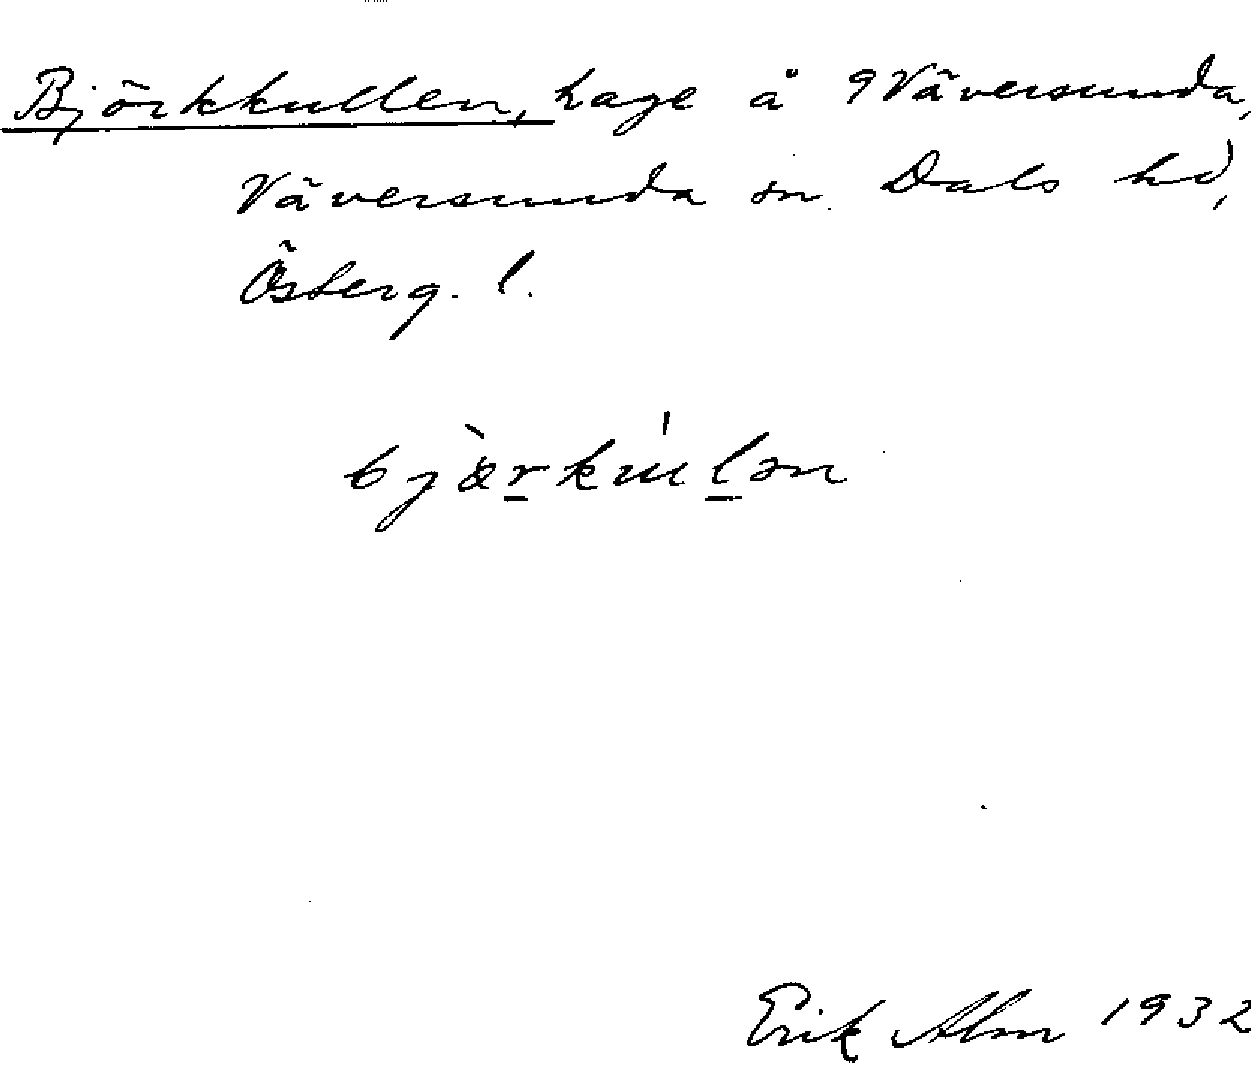 Björkkullen, hage å 9 Väversunda,
Väversunda sn. Dals hd,
Österg. l.
bjæ̀rkúlən
Erik Alm 1932